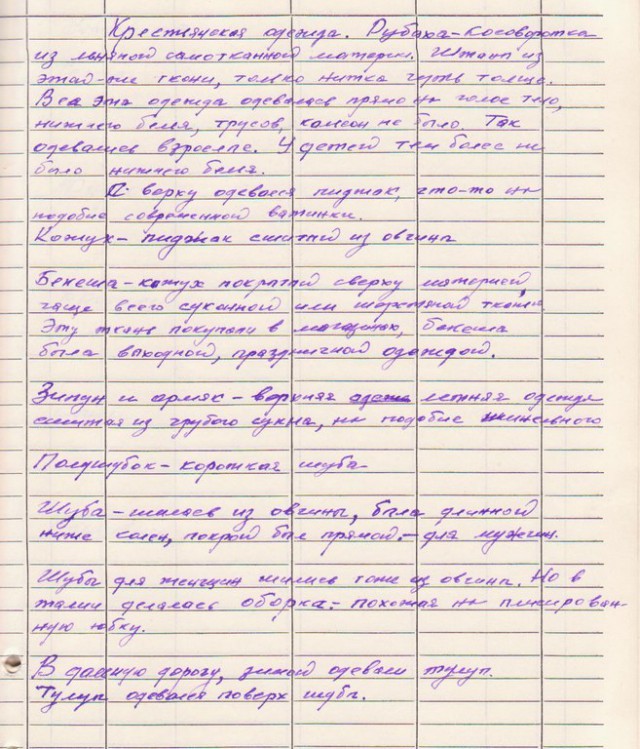 Крестьянская одежда. Рубаха-косоворотка
из льняной самотканной материи. Штаны из
этой-же ткани, только нитка чуть толще.
Вся эта одежда одевалась прямо на голое тело,
нижнего белья, трусов, кальсон не было. Так
одевались взрослые. У детей тем более не
было нижнего белья.
С верху одевался пиджак, что-то на
подобие современной ватинки.
Кожух - пиджак сшитый из овчины
Бекеша-кожух покрытый сверху материей,
чаще всего суконной или шерстяной тканью.
Эту ткань покупали в магазинах, бекеша
была выходной, праздничной одеждой.
Зипун и армяк - верхняя летняя одежда
сшитая из грубого сукна, на подобие шинельного
Полушубок - короткая шуба
Шуба - шилась из овчины, была длинной
ниже колен, покрой был прямой. - для мужчин.
Шубы для женщин шились тоже из овчины. Но в
талии делалась оборка. - похожая на плиссирован-
ную юбку.
В дальную дорогу, зимой одевали тулуп.
Тулуп одевался поверх шубы.